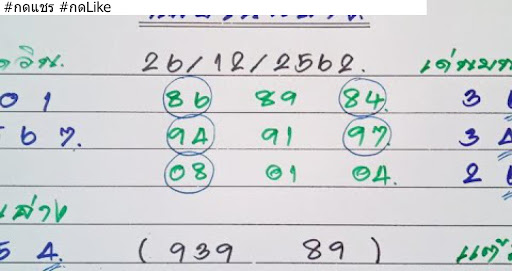 #กดแชร #กดLike
26/12/2562.
0 1 86 89 84. 3
6 7. 94 91 97. 3 4
08 01 04. 2
ล่าง
5 4. (939 89)